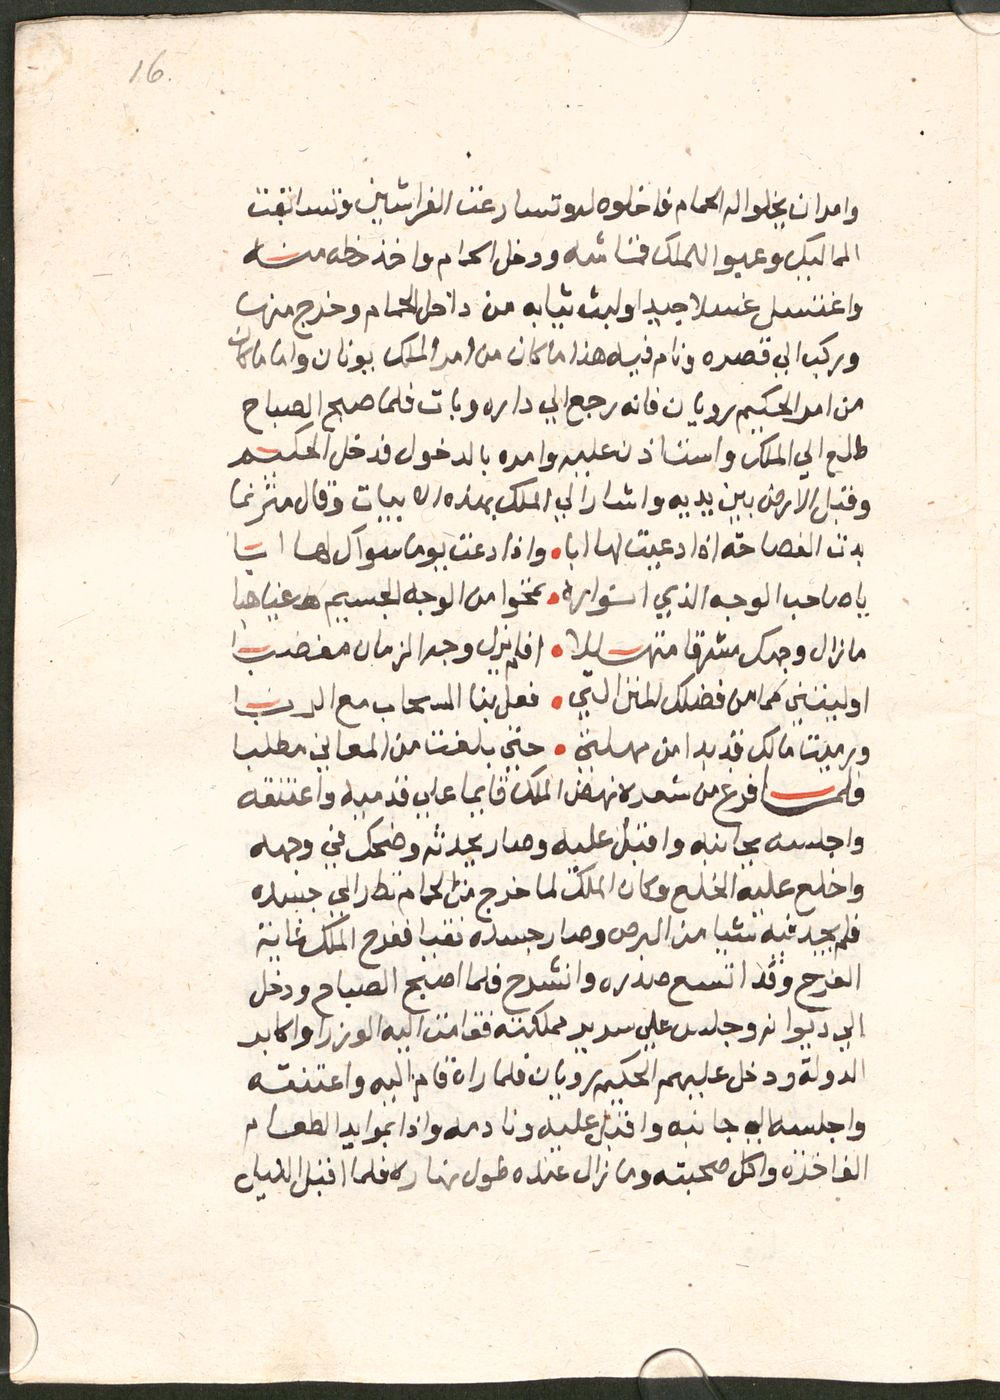 16.
وامر ان يخلوا له الحمام فاخلوه له وتسارعت الفراشين وتسابقت
المماليك وعبوا للملك قماشه ودخل الحمام واخذ حظه منه
واغتسل غسلا جيدا ولبث ثيابه من داخل الحمام وخرج منها
وركب الي قصره ونام فيه هذا ما كان من امر الملك يونان واما ما كان
من امر الحكيم رويان فانه رجع الي داره وبات فلما صبح الصباح
طلع الي الملك واستاذن عليه وامره بالدخول فدخل الحكيم
وقبل الارض بين يديه واشار الي الملك بهذه الابيات وقال مترنما
بدت الفصاحه اذا دعيت لها ابا • واذا دعت يوما سواك لها ابا
يا صاحب الوجه الذي انواره • تمحوا من الوجه الجسيم غياهبا
ما زال وجهك مشرقا متهللا • افلم يزل وجه الزمان مغضبا
اوليتني كما من فضلك المنن التي • فعل بنا السحاب مع الربا
ورميت مالك قد بدا من مهلتي • حتي بلغت من المعالي مطلبا
فلما فرغ من شعره نهض الملك قايما علي قدميه واعتنقه
واجلسه بجانبه واقبل عليه وصار يحدثه وضحك في وجهه
واخلع عليه الخلع وكان الملك لما خرج من الحمام نظر الي جسده
فلم يجد فيه شيا من البرص وصار جسده نقيا ففرح الملك غاية
الفرح وقد اتسع صدره وانشرح فلما اصبح الصباح ودخل
الي ديوانه وجلس علي سرير مملكته فقامت اليه الوزرا واكابر
الدولة ودخل عليهم الحكيم رويان فلما راه قام اليه واعتنقه
واجلسه الي جانبه واقبل عليه ونادمه واذا بموايد الطعام
الفاخره واكل صحبته وما زال عنده طول نهاره فلما اقبل الليل